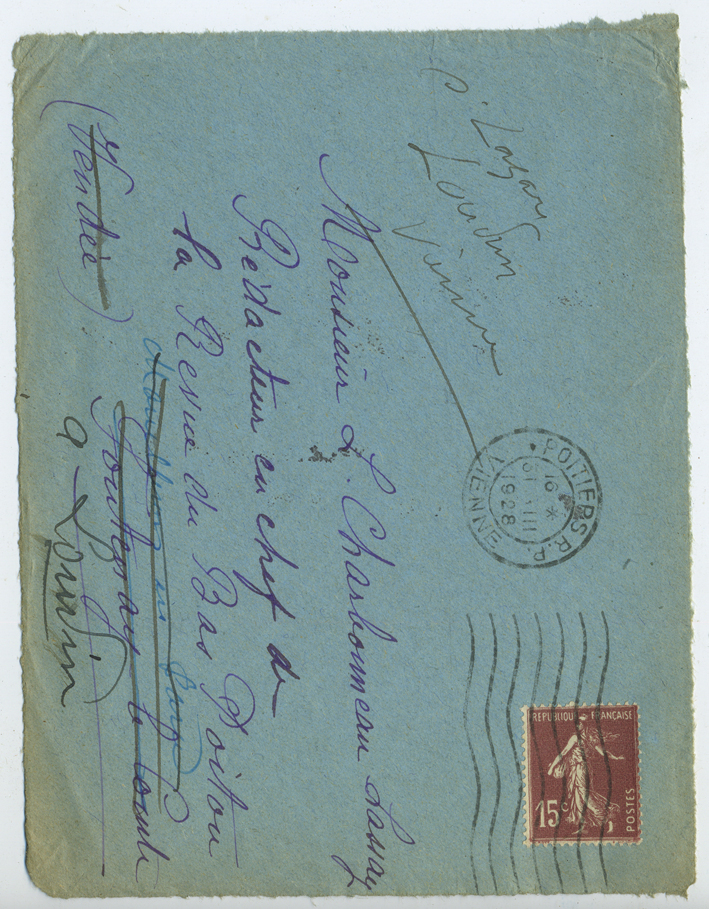 Loudun
Vienne
POITIERS R.P.
16 *
31 VIII
1928
VIENNE
REPUBLIQUE FRANÇAISE
15c
POSTES
Monsieur L. Charbonneau Lassay
Rédacteur en chef de
la Revue du Bas Poitou
Fontenay le Comte
(Vendée)
à Loudun